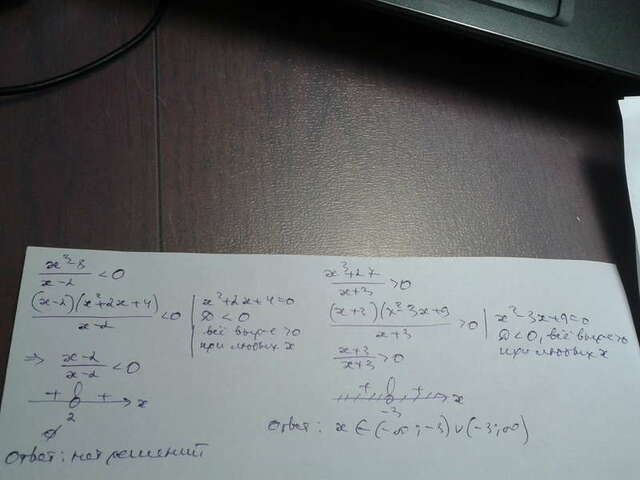 x³-8/x-2 <0
(x-2)(x²+2x+4)/x-2 <0
x²+2x+4=0
D<0
всё выр-е >0
при любых x
=> x-2/x-2 <0
+ + x
2
∅
Ответ: нет решений
x³+27/x+3 >0
(x+3)(x²-3x+9/x+3 >0
x²-3x+9=0
D<0, всё выр-е >0
при любых x
x+3/x+3 >0
+ + x
-3
Ответ: x ∈ (-∞; -3) ∪ (-3; ∞)